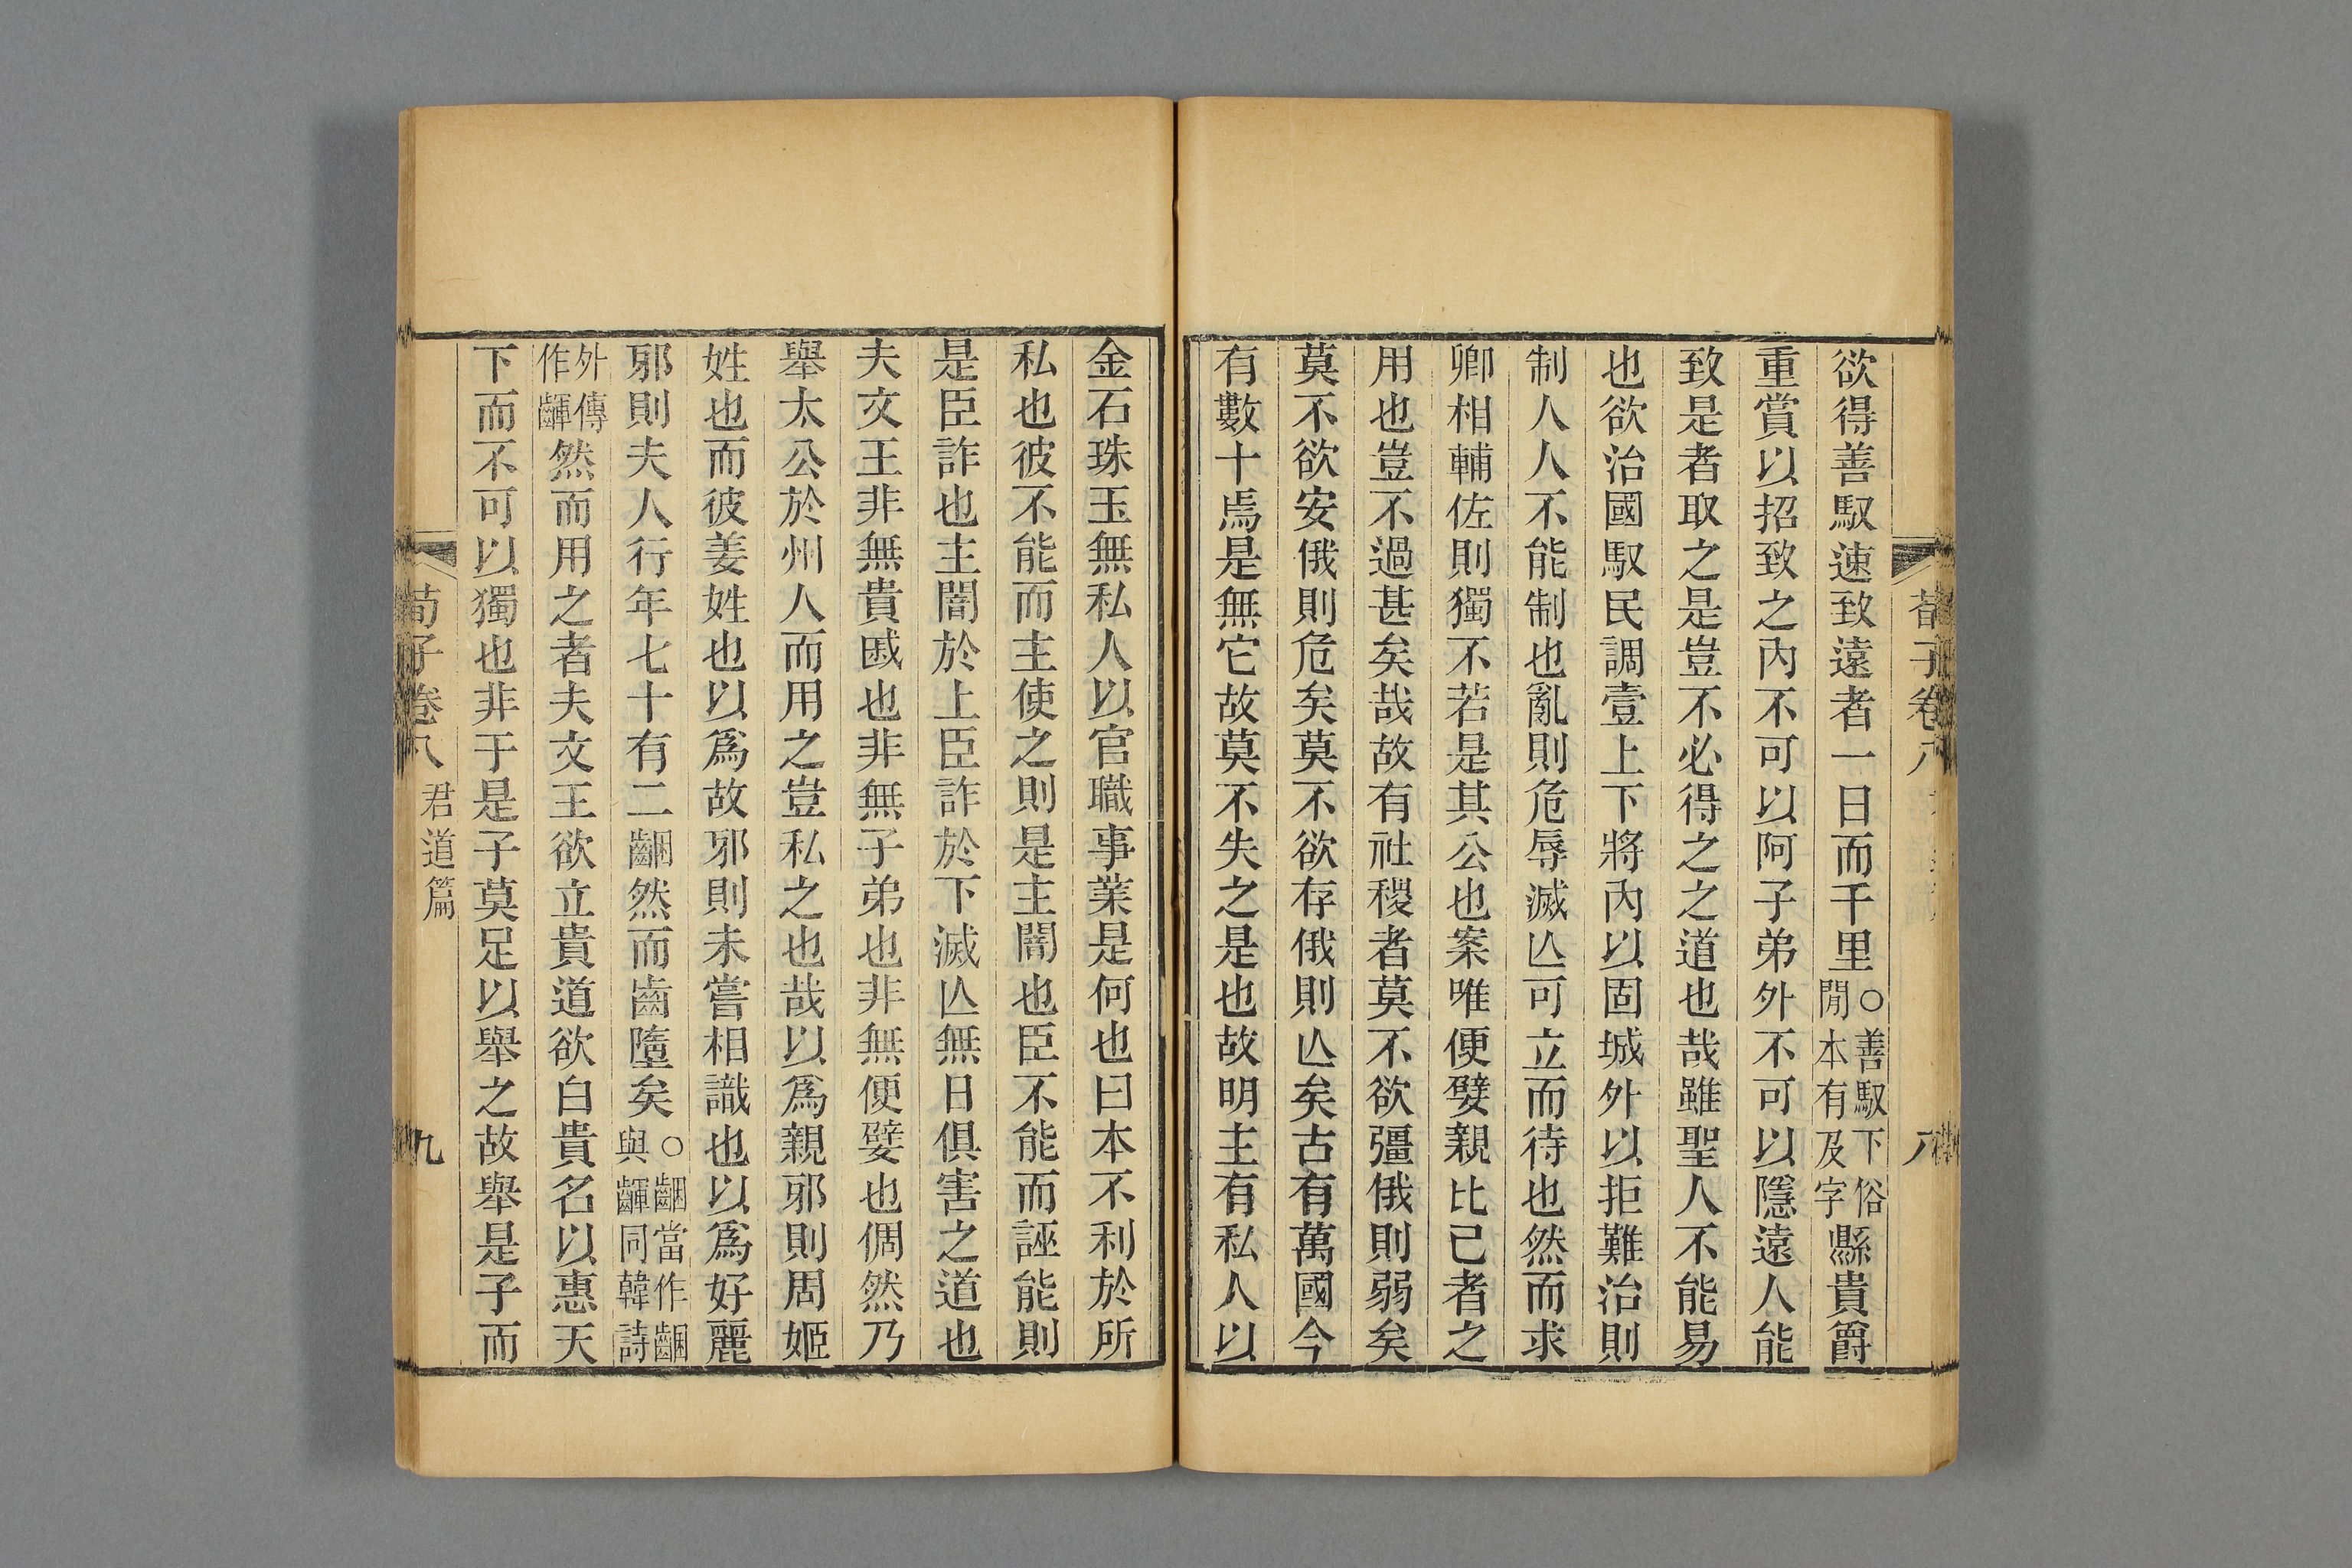 欲得善馭速致遠者一日而千里○善馭下俗閒本有及字縣貴爵
重賞以招致之內不可以阿子弟外不可以隱遠人能
致是者取之是豈不必得之之道也哉雖聖人不能易
也欲治國馭民調壹上下將內以固城外以拒難治則
制人人不能制也亂則危辱滅亾可立而待也然而求
卿相輔佐則獨不若是其公也案唯便嬖親比己者之
用也豈不過甚矣哉故有社稷者莫不欲彊俄則弱矣
莫不欲安俄則危矣莫不欲存俄則亾矣古有萬國今
有數十焉是無它故莫不失之是也故明主有私人以
金石珠玉無私人以官職事業是何也曰本不利於所
私也彼不能而主使之則是主闇也臣不能而誣能則
是臣詐也主闇於上臣詐於下滅亾無日俱害之道也
夫文王非無貴戚也非無子弟也非無便嬖也倜然乃
舉太公於州人而用之豈私之也哉以爲親邪則周姬
姓也而彼姜姓也以爲故邪則未嘗相識也以爲好麗
邪則夫人行年七十有二齫然而齒墮矣○齫當作齫與齳同韓詩
外傳作齳然而用之者夫文王欲立貴道欲白貴名以惠天
下而不可以獨也非于是子莫足以舉之故舉是子而
荀子卷八 君道篇 九